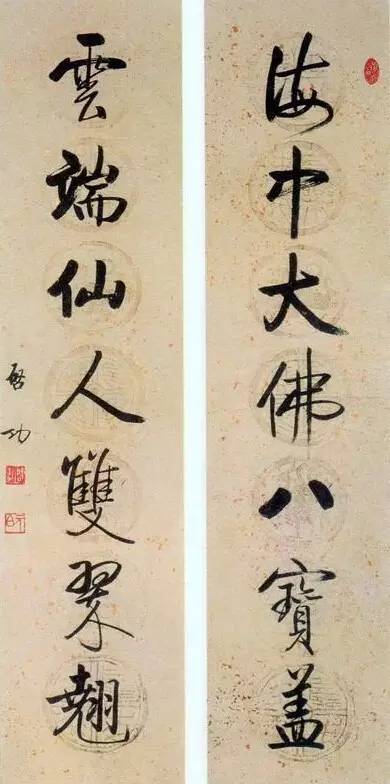 海中大佛八寶蓋
雲端仙人雙翠翹
啓功